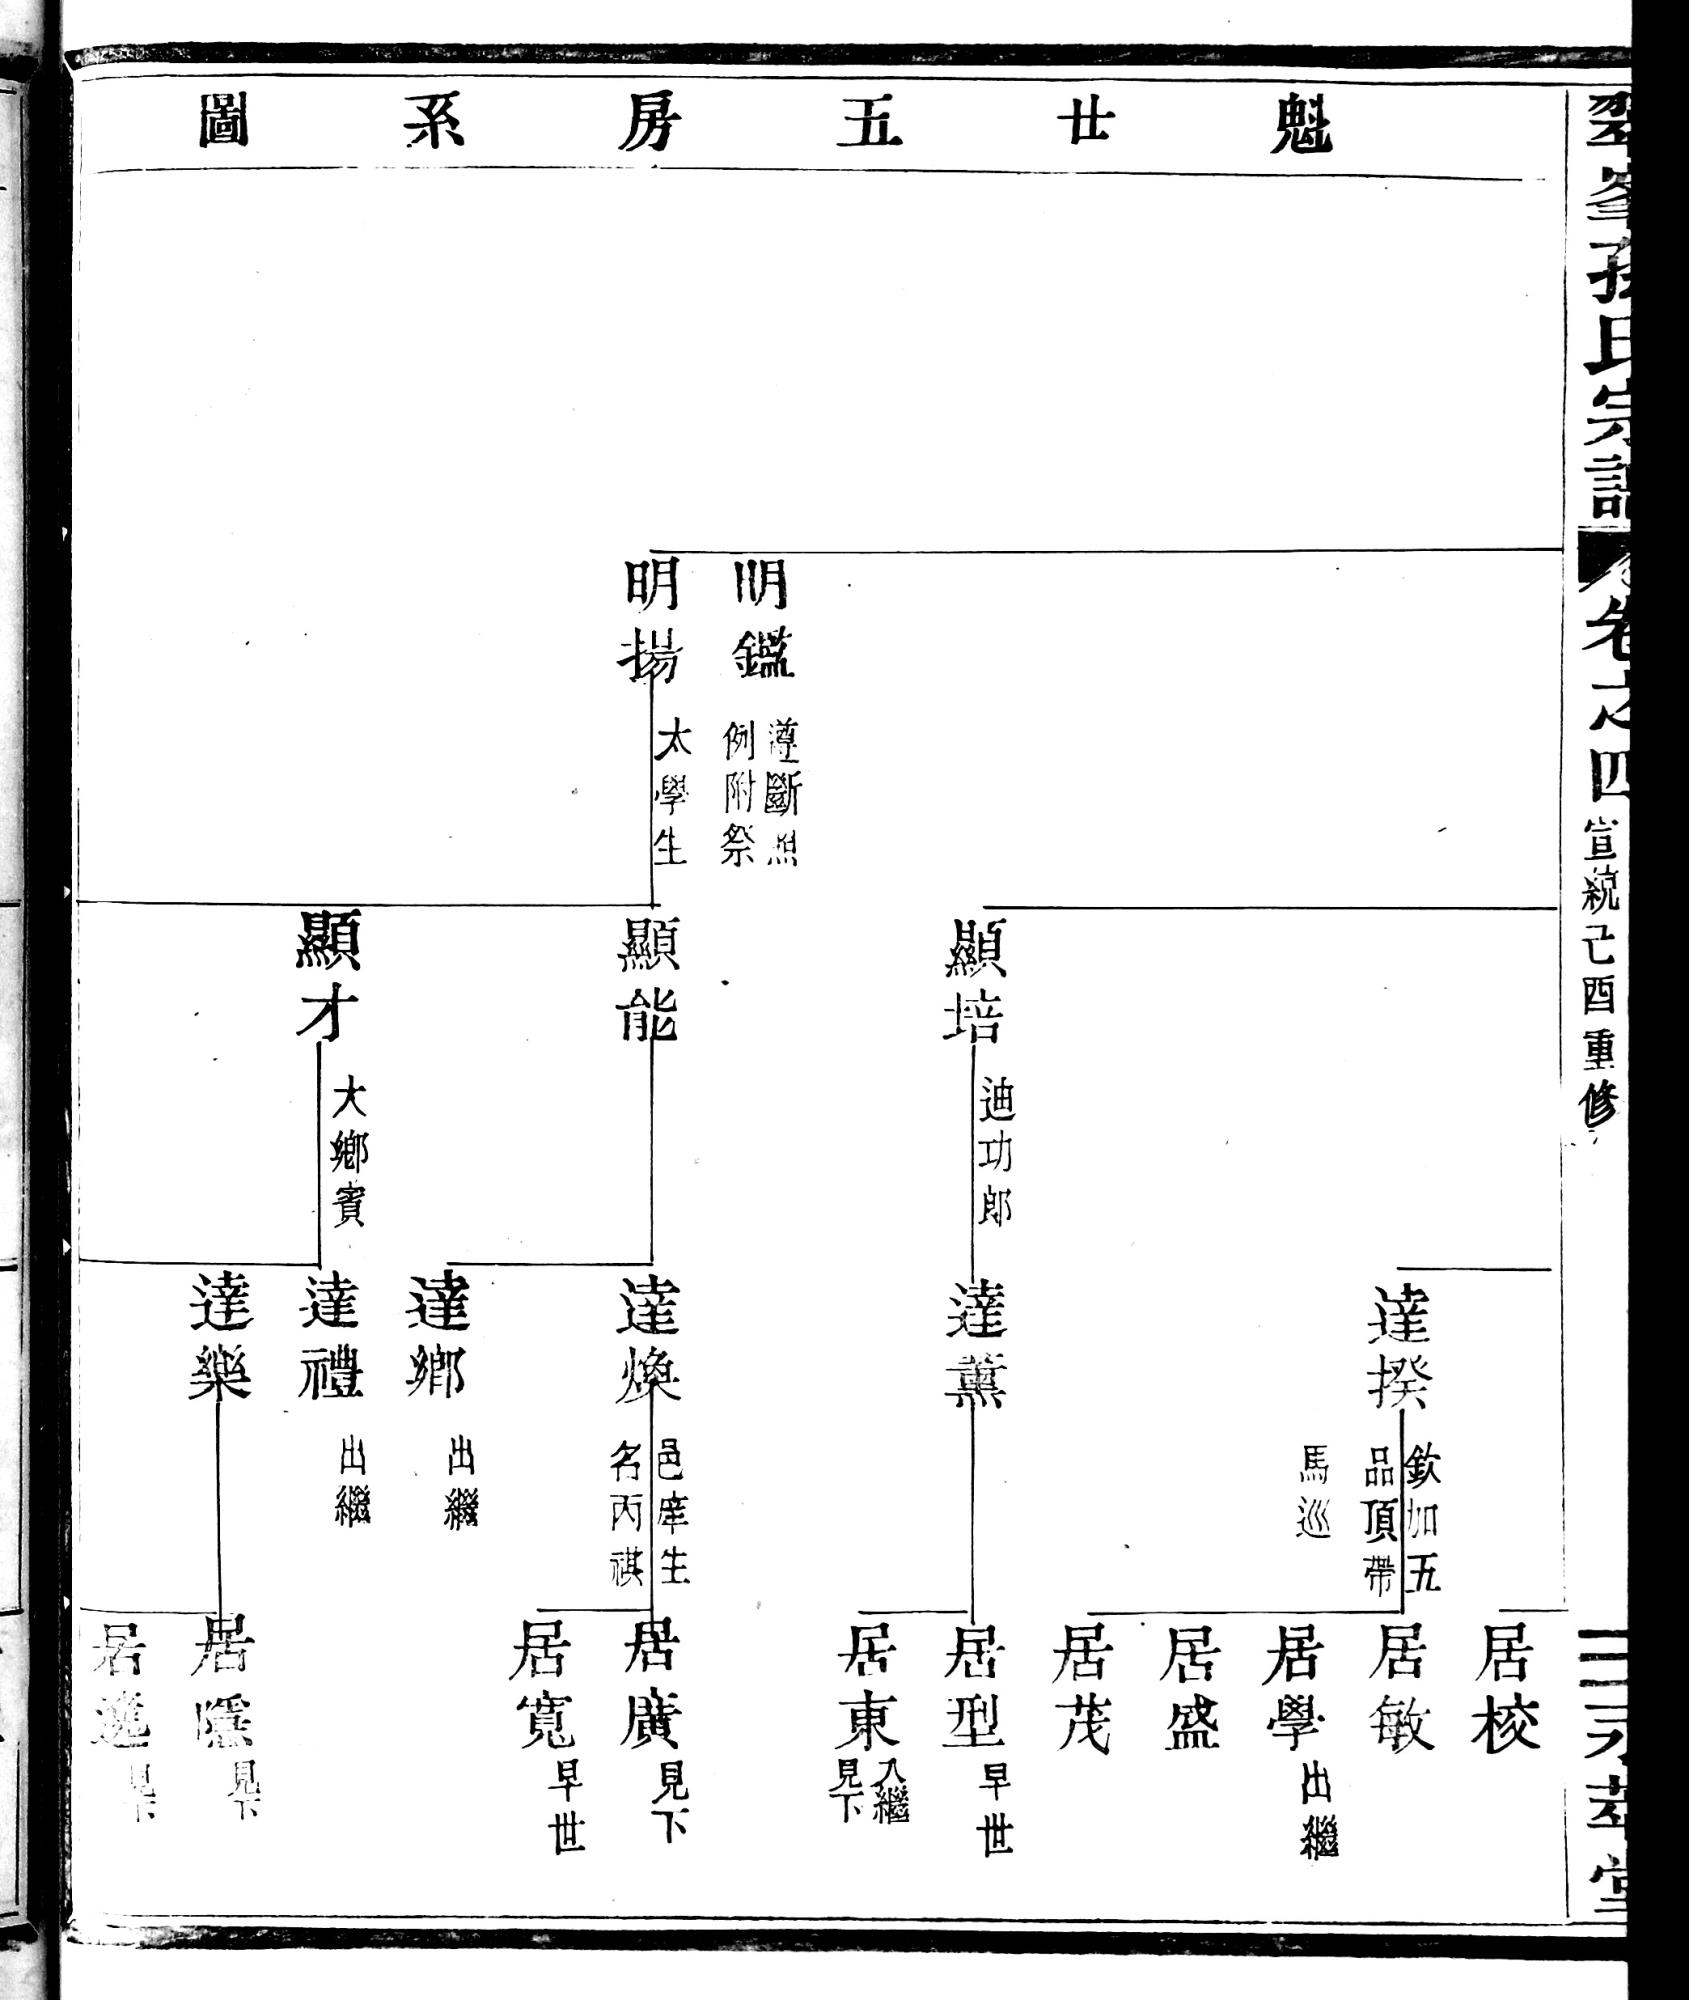 翠峯孫氏宗譜
卷之四
宣統己酉重修
三
萃堂
魁廿五房系圖
明鑑
遵斷照
例附祭
明揚
太學生
顯培
迪功郎
顯能
顯才
大鄉賓
達揆
欽加五
品頂帶
馬巡
達薰
達煥
邑庠生
名丙祺
達鄉
出繼
達禮
出繼
達樂
居校
居敏
居學
出繼
居盛
居茂
居型
早世
居東
入繼
見下
居廣
見下
居寬
早世
居隱
見下
居逸
見下